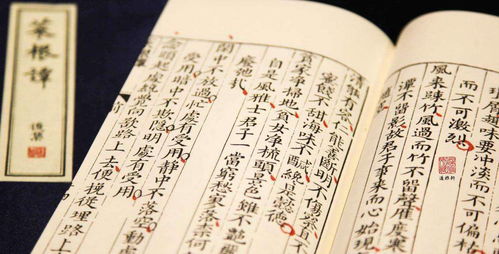 菜根譚
瑣屑趣味要冲淡而不可偏枯
而不可激烈
風來疎竹風過而竹不留聲雁度寒
潭不留影故君子事來而心始現
清能有容仁能善斷明不傷察
蜜餞不甜海味不鹹纔是懿德
貧家淨掃地貧女淨梳頭景色雖不艷
自是風雅士君子一當窮愁寥落奈何
廢弛哉
閒中不放過忙處有受用靜中不落空動處
受用暗中不欺隱明處有受用
念頭起處纔覺向欲路上去便挽從理路上